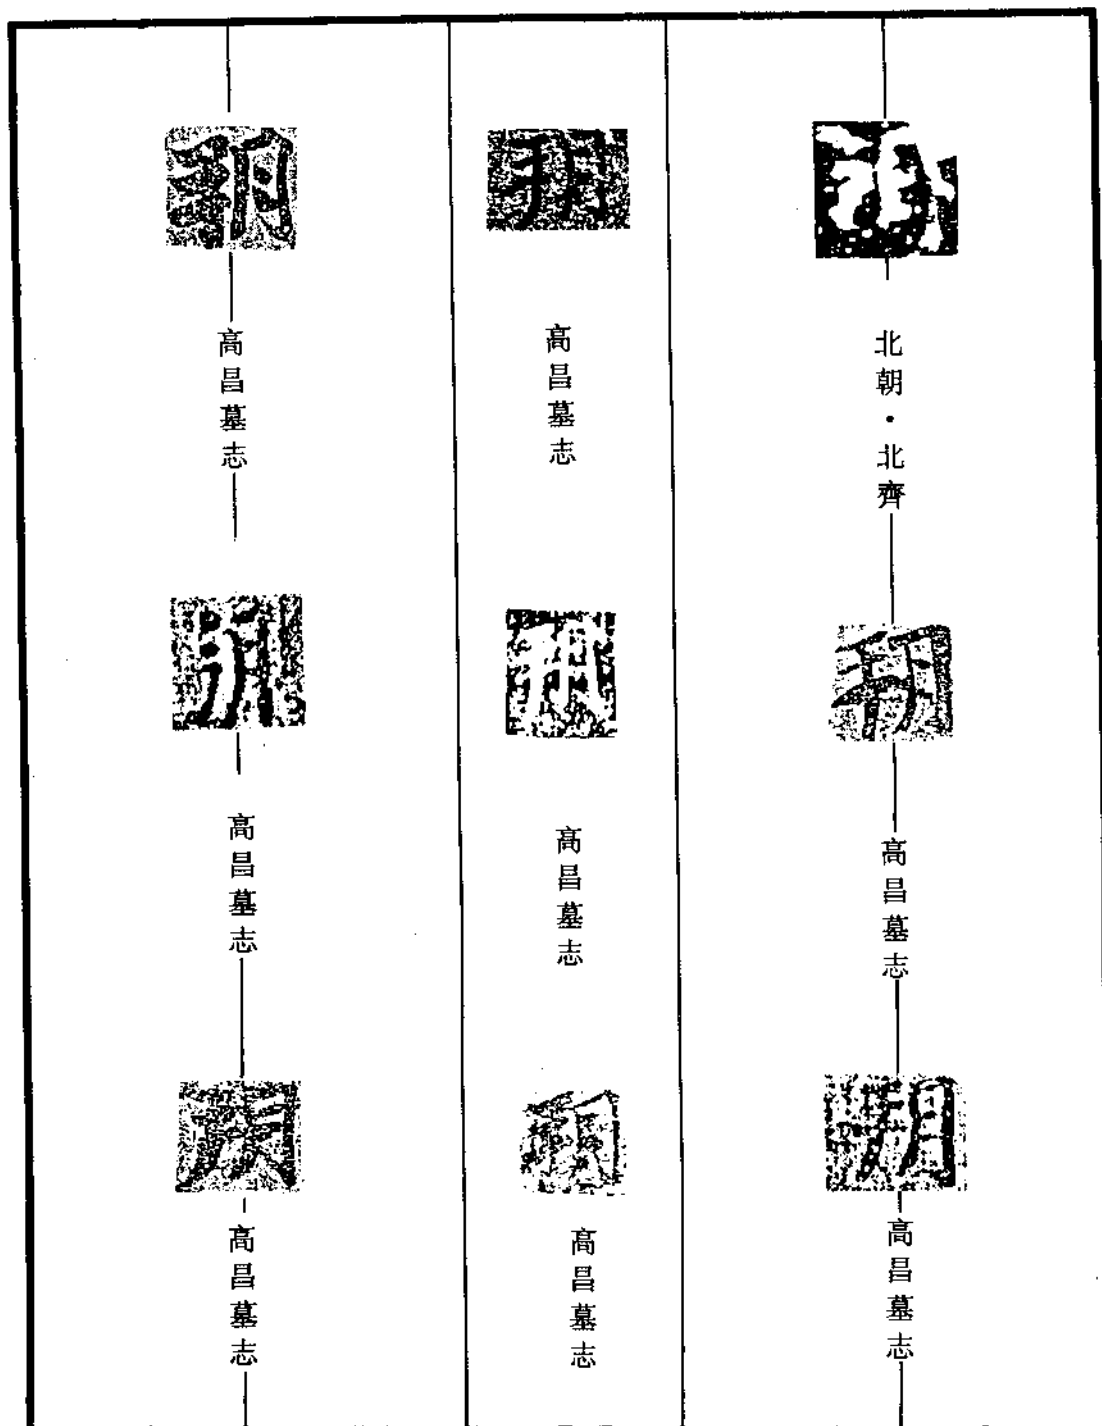 北朝·北齊
高昌墓志
高昌墓志
高昌墓志
高昌墓志
高昌墓志
高昌墓志
高昌墓志
高昌墓志